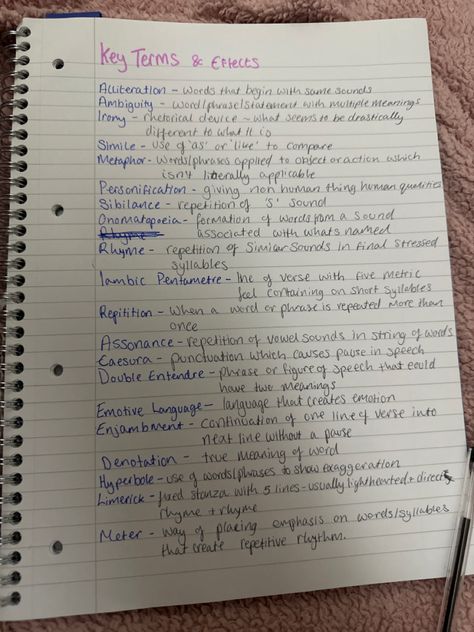 Key Terms & Effects
Alliteration - Words that begin with same sounds
Ambiguity - word/phrase/statement with multiple meanings
Irony - rhetorical device ~ what seems to be drastically
different to what it is
Simile - use of 'as' or 'like' to compare
Metaphor - Words/phrases applied to object or action which
isn't literally applicable
Personification - giving non human thing human qualities
Sibilance - repetition of 's' sound
Onomatopoeia - formation of words from a sound
associated with what's named
Rhyme - repetition of similar sounds in final stressed
syllables
Iambic Pentametre - line of verse with five metric
feet containing on short syllables
Repitition - when a word or phrase is repeated more than
once
Assonance - repetition of vowel sounds in string of words
Caesura - punctuation which causes pause in speech
Double Entendre - phrase or figure of speech that could
have two meanings
Emotive Language - language that creates emotion
Enjambment - continuation of one line of verse into
next line without a pause
Denotation - true meaning of word
Hyperbole - use of words/phrases to show exaggeration
Limerick - fixed stanza with 5 lines - usually lighthearted + direct
rhyme + rhyme
Meter - way of placing emphasis on words/syllables
that create repetitive rhythm.